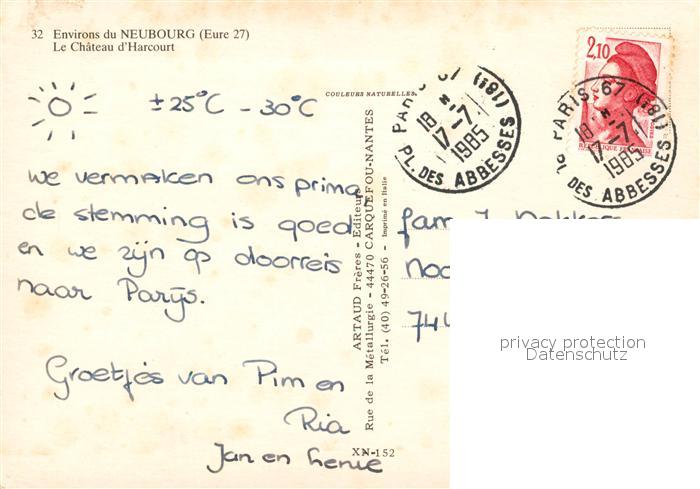 32 Environs du NEUBOURG (Eure 27)
Le Château d'Harcourt
COULEURS NATURELLES
± 25°C - 30°C
we vermaken ons prima,
de stemming is goed
en we zijn op doorreis
naar Parijs.
Groetjes van Pim en
Ria
Jan en
ARTAUD Frères - Editeurs
Rue de la Métallurgie - 44470 CARQUEFOU-NANTES
Tél. (40) 49-26-56 - Imprimé en Italie
XN-152
2,10
REPUBLIQUE FRANÇAISE
PARIS 67 (18E)
18 H
17-7
1985
PL. DES ABBESSES
PARIS-67 (18E)
18 H
17-7
1985
PL. DES ABBESSES
fam J.
744
privacy protection
Datenschutz